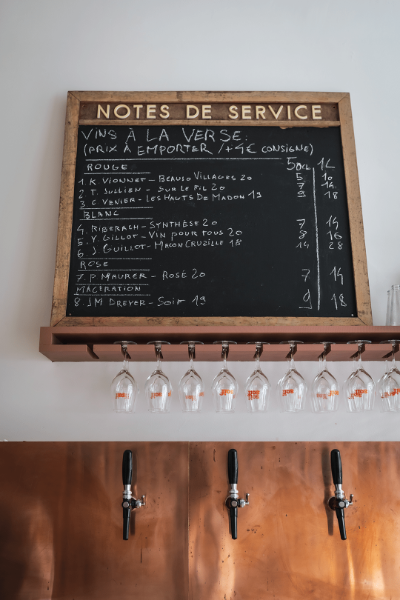 NOTES DE SERVICE
VINS À LA VERSE.
(PRIX À EMPORTER /+4€ CONSIGNE)
ROUGE 50CL 1L
1. K VIONNET - BEAUJO VILLAGES 20 5 10
2 T. JULLIEN - SUR LE PIL 20 7 14
3 C VENIER - LES HAUTS DE MADON 19 9 18
BLANC
4. RIBERACH - SYNTHÈSE 20 7 14
5. Y GILLOT - VIN POUR TOUS 20 8 16
6 J GUILLOT - MACON CRUZILLE 18 14 28
ROSÉ
7 P MAURER - ROSÉ 20 7 14
MACÉRATION
8 JM DREYER - SOIF 19 9 18